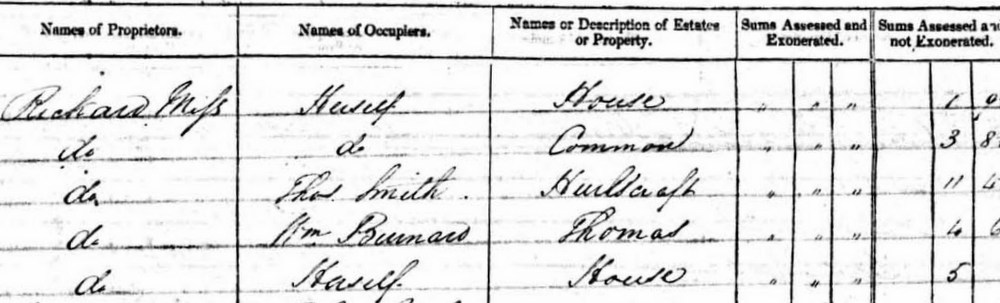 Names of Proprietors. Names of Occupiers. Names or Description of Estates or Property. Sums Assessed and Exonerated. Sums Assessed and not Exonerated.
Rickard Miss Herself House " " " 1
do do Common " " " 3 8
do Thos Smith Hurlscroft " " " 11 4
do Wm Burnard Thomas " " " 4 6
do Herself House " " " 5